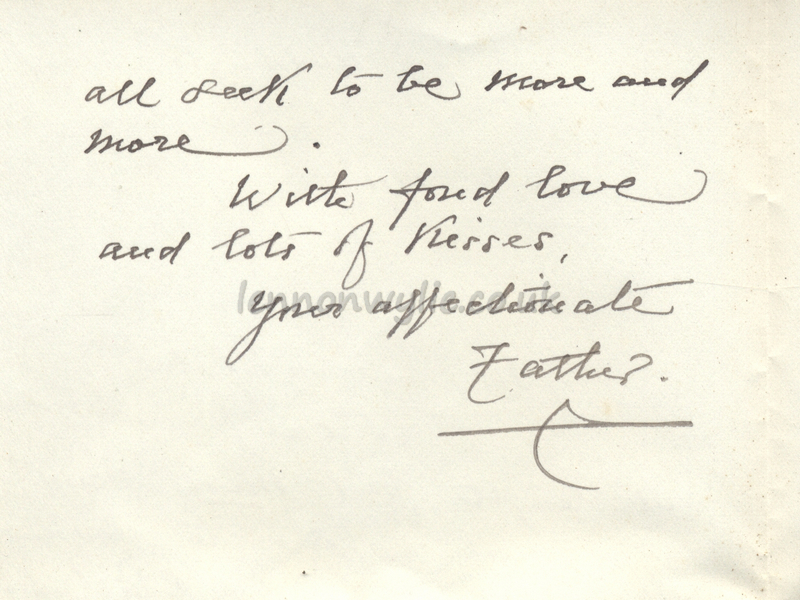 all seek to be more and
more .
With fond love
and lots of kisses,
lennonwylie.co.uk
Your affectionate
Father.